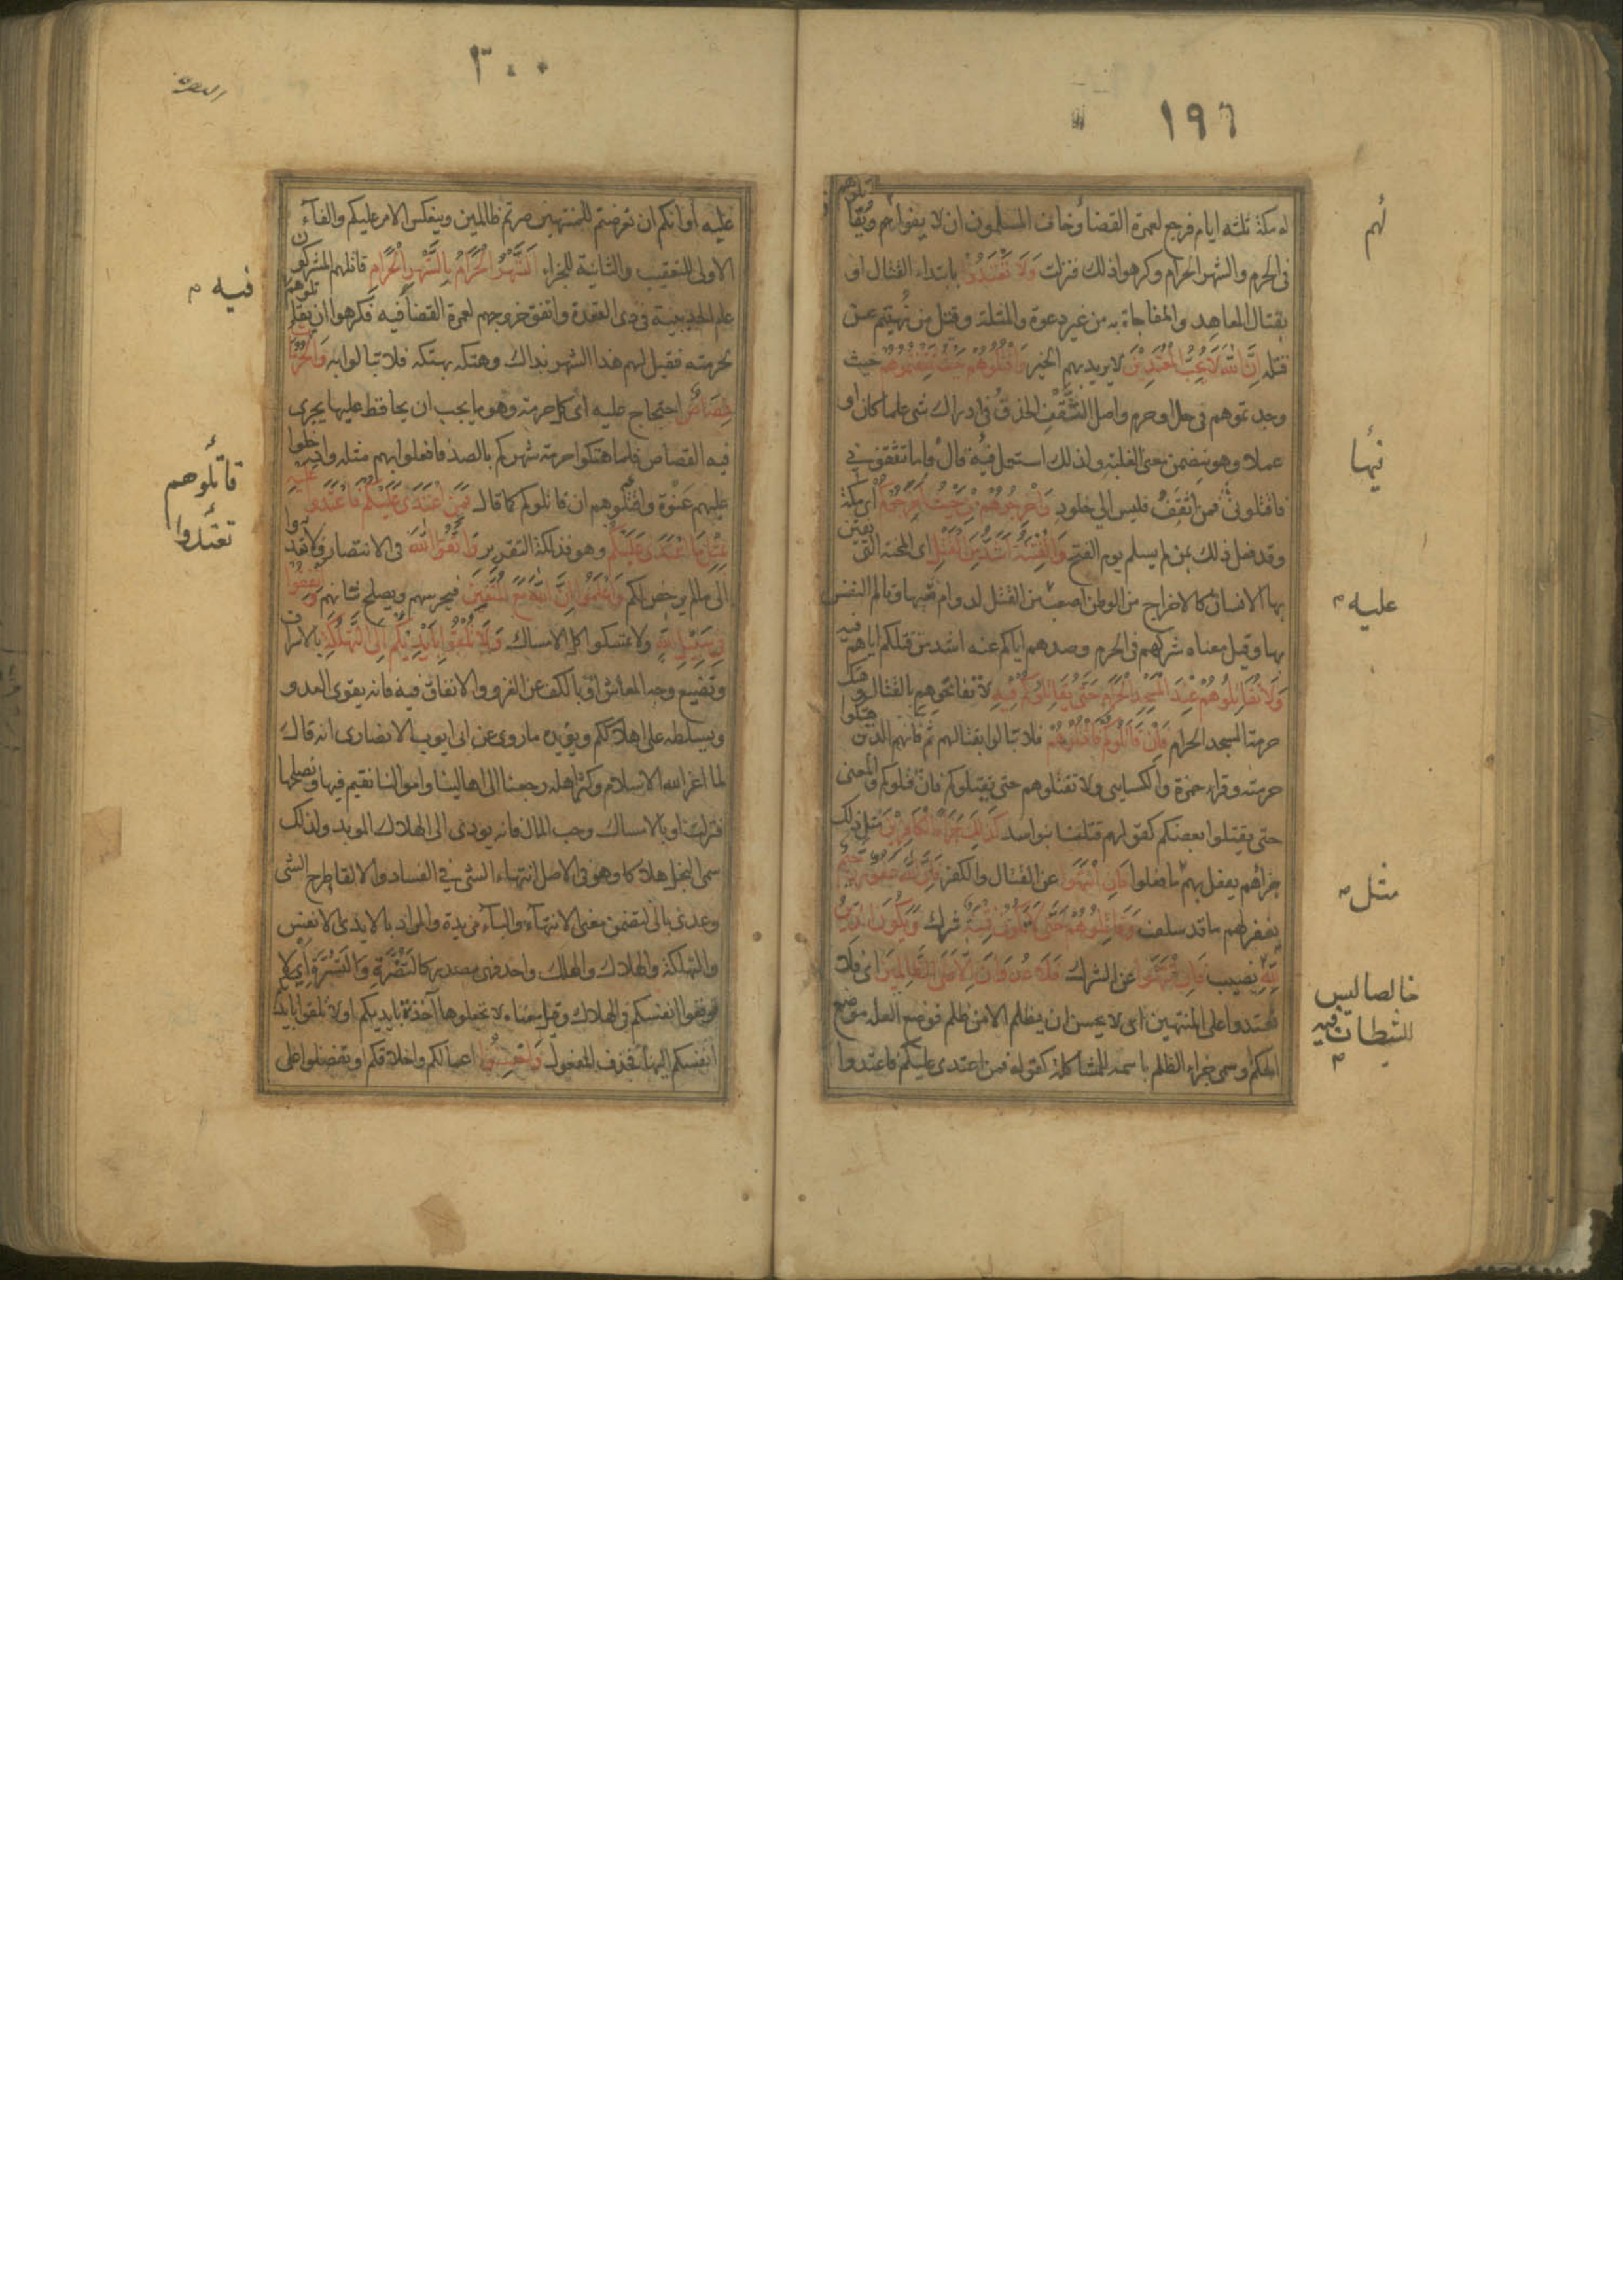 ١٩٦
له مكة ثلثة ايام فرجع لعمرة القضاء وخاف المسلمون ان لا يفوا لهم ويقاتلوهم
فى الحرم والشهر الحرام وكرهوا ذلك فنزلت وَلَا تَعْتَدُوْا بابتداء القتال او
بقتال المعاهد والمفاجاة به من غير دعوة والمثلة وقتل من نهيتم عن
قتله اِنَّ اللّٰهَ لَا يُحِبُّ الْمُعْتَدِيْنَ لا يريد بهم الخير وَاقْتُلُوْهُمْ حَيْثُ ثَقِفْتُمُوْهُمْ حيث
وجد تموهم فى حل او حرم واصل الثقف الحذق فى ادراك شى علما كان او
عملا وهو يتضمن معنى الغلبة ولذلك استعمل فيها قال فاما تثقفونى
فاقتلونى فمن اثقف فليس الى خلود وَاَخْرِجُوْهُمْ مِنْ حَيْثُ اَخْرَجُوْكُمْ اى مكة
وقد فعل ذلك بمن لم يسلم يوم الفتح وَالْفِتْنَةُ اَشَدُّ مِنَ الْقَتْلِ اى المحنة التى يفتتن
بها الانسان كالاخراج من الوطن اصعب من القتل لدوام تعبها وتالم النفس
بها وقيل معناه شركهم فى الحرم وصدهم اياكم عنه اشد من قتلكم اياهم فيه
وَلَا تُقَاتِلُوْهُمْ عِنْدَ الْمَسْجِدِ الْحَرَامِ حَتّٰى يُقَاتِلُوْكُمْ فِيْهِ لا تفاتحوهم بالقتال وهتك
حرمة المسجد الحرام فَاِنْ قَاتَلُوْكُمْ فَاقْتُلُوْهُمْ فلا تبالوا بقتالهم ثم فانهم الذين هتكوا
حرمته وقراء حمزة والكسايى ولا تقتلوهم حتى يقتلوكم فان قتلوكم والمعنى
حتى يقتلوا بعضكم كقولهم قتلنا بنو اسد كَذٰلِكَ جَزَاءُ الْكَافِرِيْنَ مثل ذلك
جزاؤهم يفعل بهم ما فعلوا فَاِنِ انْتَهَوْا عن القتال والكفر فَاِنَّ اللّٰهَ غَفُوْرٌ رَحِيْمٌ
يغفر لهم ما قد سلف وَقَاتِلُوْهُمْ حَتّٰى لَا تَكُوْنَ فِتْنَةٌ شرك وَيَكُوْنَ الدِّيْنُ
لِلّٰهِ نصيب فَاِنِ انْتَهَوْا عن الشرك فَلَا عُدْوَانَ اِلَّا عَلَى الظَّالِمِيْنَ اى فلا
تعتدوا على المنتهين اى لا يحسن ان يظلم الا من ظلم فوضع العلة موضع
الحكم وسمى جزاء الظلم باسمه للمشاكلة كقوله فمن اعتدى عليكم فاعتدوا
لهم
فيها
عليه
مثل
خالصا ليس
للشيطان فيه
٢٠٠
عليه او انكم ان تعرضتم للمنتهين صرتم ظالمين وينعكس الامر عليكم والفاء
الاولى للتعقيب والثانية للجزاء اَلشَّهْرُ الْحَرَامُ بِالشَّهْرِ الْحَرَامِ قاتلهم المشركون
عام الحديبية فى ذى القعدة واتفق خروجهم لعمرة القضا فيه فكرهوا ان يقاتلوهم
لحرمته فقيل لهم هذا الشهر بذاك وهتكه بهتكه فلا تبالوا به وَالْحُرُمَاتُ
قِصَاصٌ احتجاج عليه اى كل حرمة وهو ما يجب ان يحافظ عليها يجرى
فيه القصاص فلما هتكوا حرمة شهركم بالصد فافعلوا بهم مثله وادخلوا
عليهم عنوة واقتلوهم ان قاتلوكم كما قال فَمَنِ اعْتَدٰى عَلَيْكُمْ فَاعْتَدُوْا عَلَيْهِ
بِمِثْلِ مَا اعْتَدٰى عَلَيْكُمْ وهو فذلكة التقرير وَاتَّقُوا اللّٰهَ فى الانتصار ولا تعتدوا
الى ما لم يرخص لكم وَاعْلَمُوْا اَنَّ اللّٰهَ مَعَ الْمُتَّقِيْنَ فيحرسهم ويصلح شانهم وَاَنْفِقُوْا
فِىْ سَبِيْلِ اللّٰهِ ولا تمسكوا كل الامساك وَلَا تُلْقُوْا بِاَيْدِيْكُمْ اِلَى التَّهْلُكَةِ بالاسراف
وتضييع وجه المعاش او بالكف عن الغزو والانفاق فيه فانه يقوى العدو
ويسلطه على اهلاككم ويؤيده ما روى عن ابى ايوب الانصارى انه قال
لما اعز الله الاسلام وكثر اهله رجعنا الى اهالينا واموالنا نقيم فيها ونصلحها
فنزلت او بالامساك وحب المال فانه يودى الى الهلاك الموبد ولذلك
سمى البخل هلاكا وهو فى الاصل انتهاء الشى فى الفساد والالقا طرح الشى
وعدى بالى لتضمن معنى الانتهاء والباء مزيدة والمراد بالايدى الانفس
والتهلكة والهلاك والهلك واحد فهى مصدر كالتضرة والتسرة اى لا
توقعوا انفسكم فى الهلاك وقيل معناه لا تجعلوها آخذة بايديكم او لا تلقوا بايديكم
انفسكم اليها فحذف المفعول وَاَحْسِنُوْا اعمالكم واخلاقكم او تفضلوا على
فيه
قاتلوهم
تعتدوا